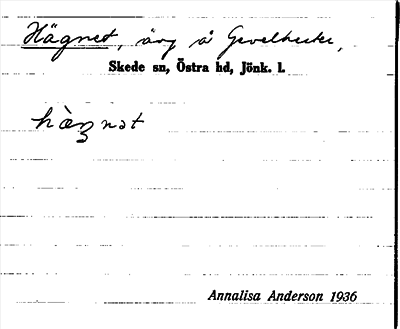 Hägnet, äng å Gevelhester,
Skede sn, Östra hd, Jönk. l.
hàgnət
Annalisa Anderson 1936